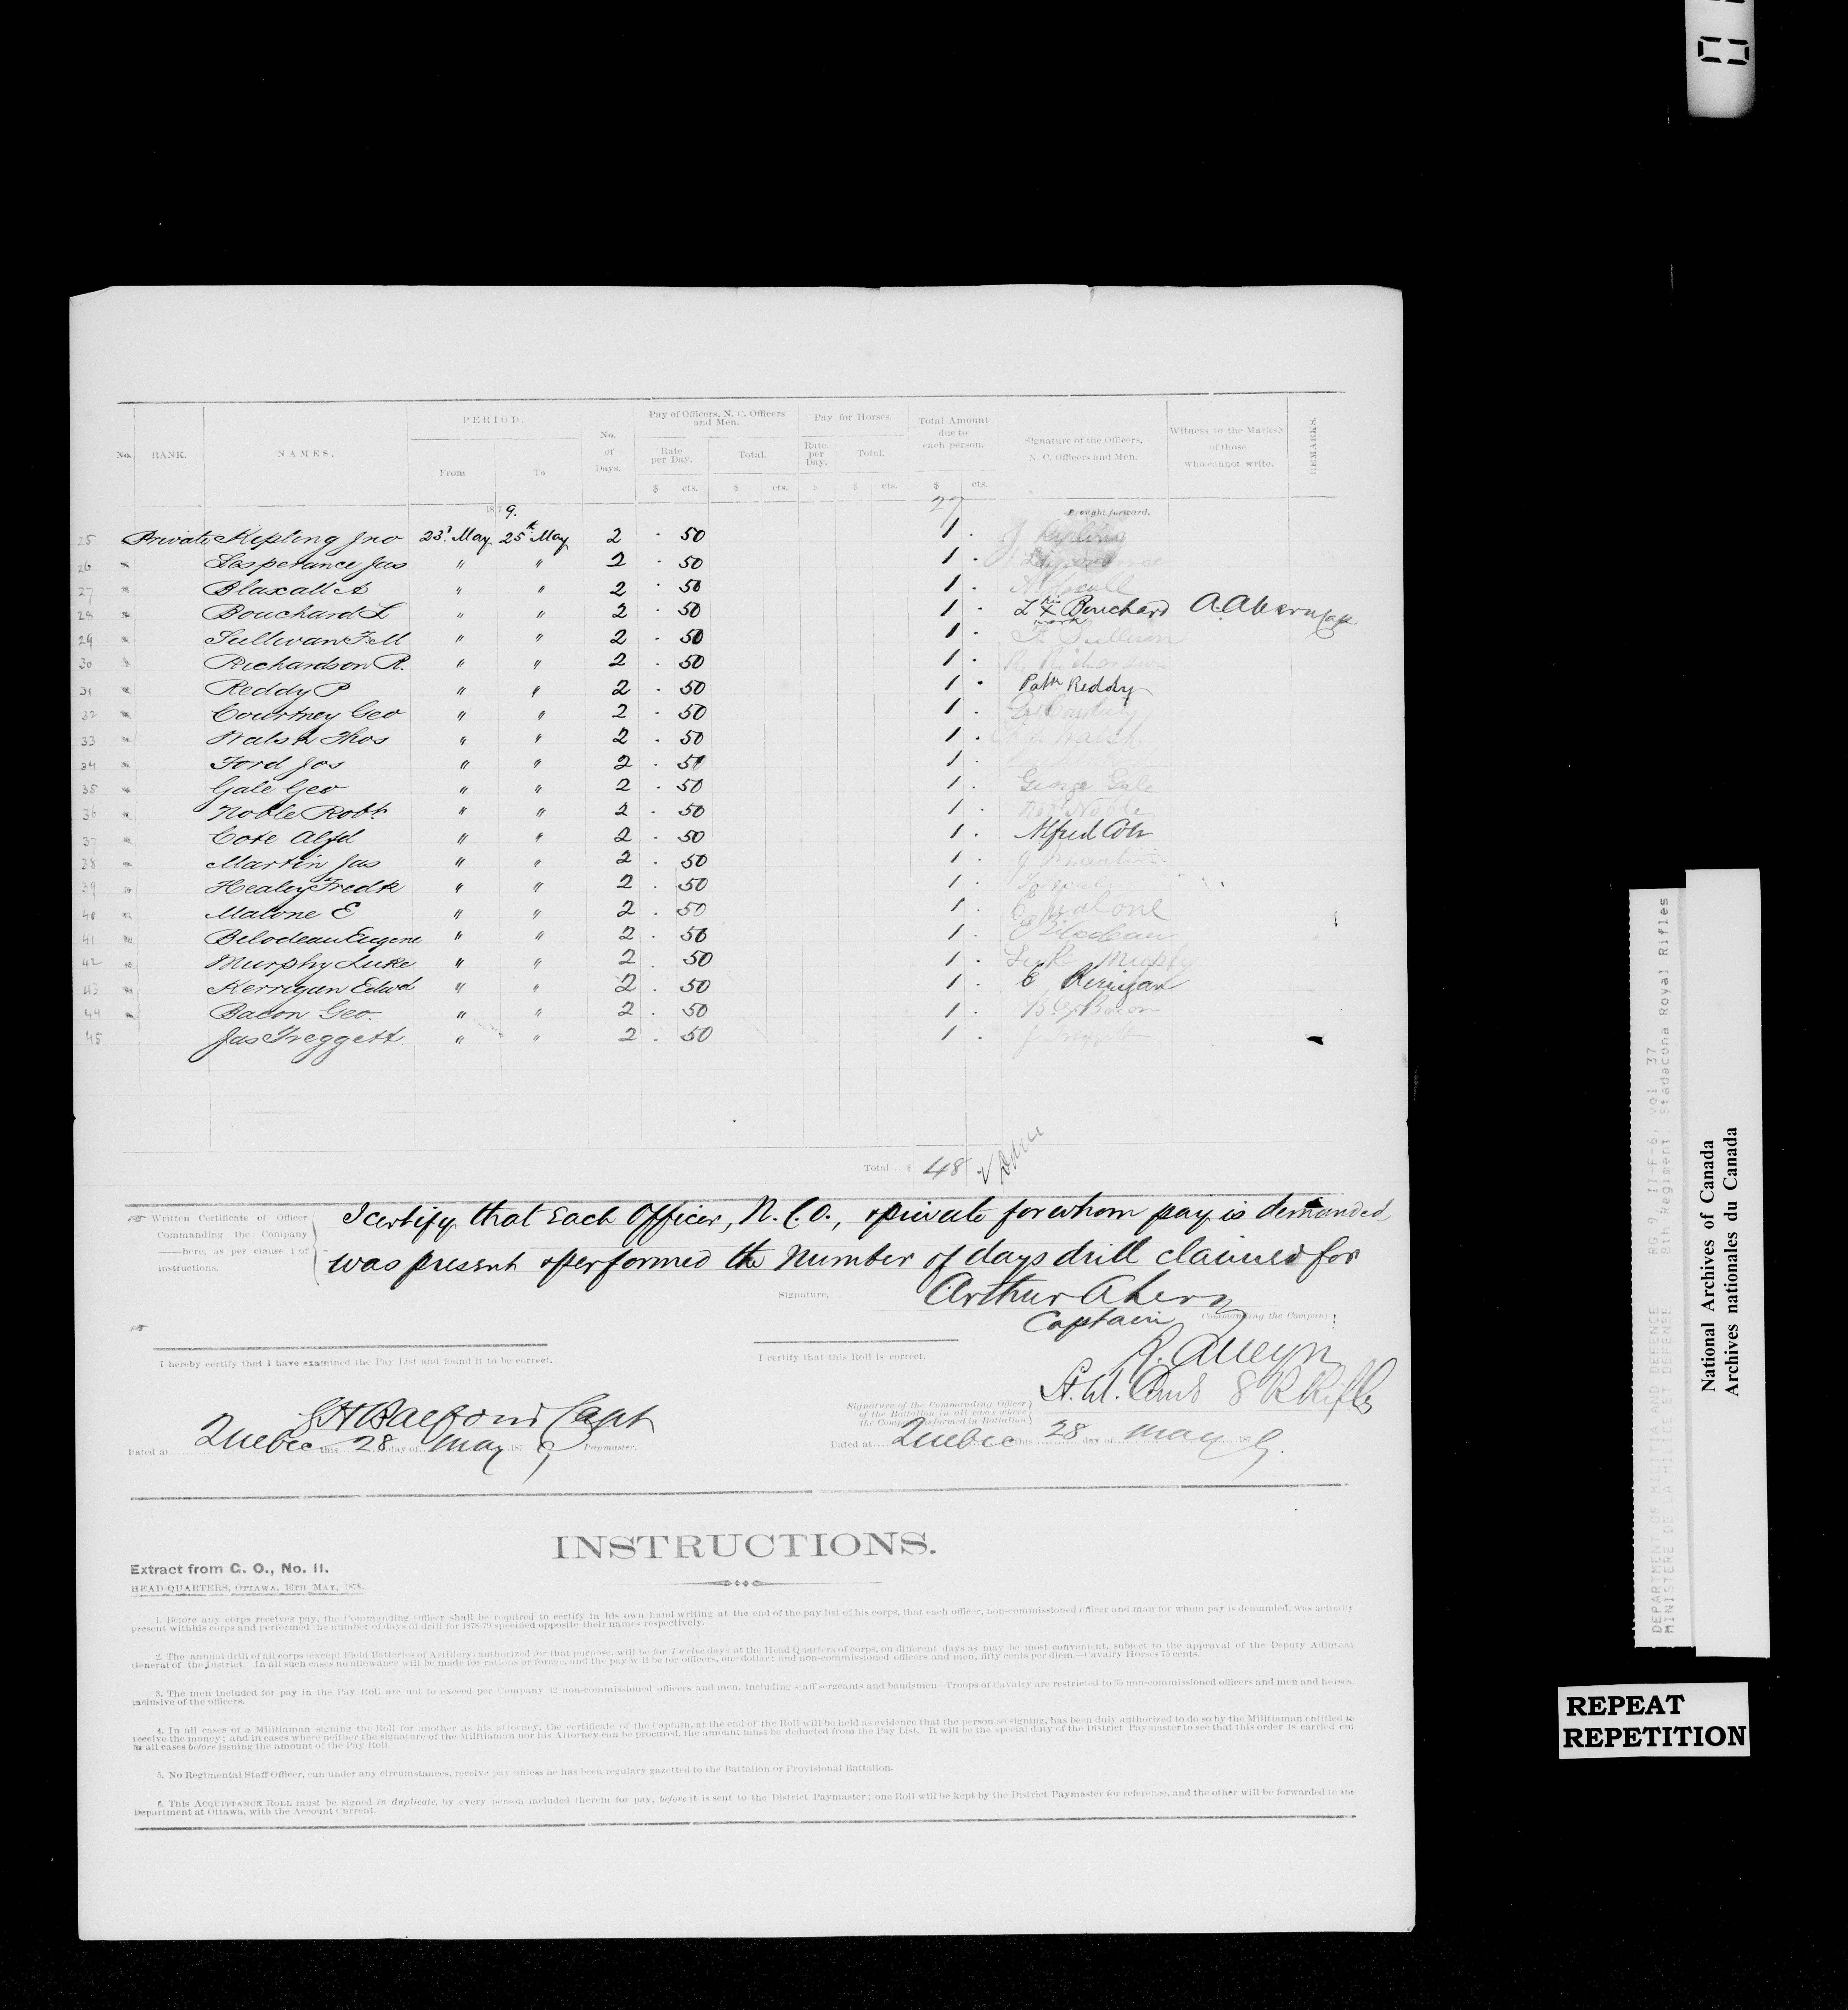 PERIOD.
Pay of Officers, N. C. Officers and Men.
Pay for Horses.
Total Amount due to each person.
Signature of the Officers, N. C. Officers and Men.
Witness to the Marks of those who cannot write.
REMARKS.
No. RANK. NAMES. From To No. of Days. Rate per Day. Total. Rate. per Day. Total.
$ cts. $ cts. $ $ cts. $ cts.
1879. 27 Brought forward.
25 Private Kipling Jno 23d May 25th May 2 . 50 1 . J Kipling
26 " Lesperance Jas " " 2 . 50 1 .
27 " Blaxall A " " 2 . 50 1 . A Blaxall
28 " Bouchard L " " 2 . 50 1 . L his x mark Bouchard A. Ahern Capt
29 " Sullivan F. M " " 2 . 50 1 . F. Sullivan
30 " Richardson R. " " 2 . 50 1 . R. Richardson
31 " Reddy P " " 2 . 50 1 . Patk Reddy
32 " Courtney Geo " " 2 . 50 1 . Geo Courtney
33 " Walsh Thos " " 2 . 50 1 . Thos. Walsh
34 " Ford Jos " " 2 . 50 1 .
35 " Gale Geo " " 2 . 50 1 . George Gale
36 " Noble Robt " " 2 . 50 1 . Robt Noble
37 " Cote Alfd " " 2 . 50 1 . Alfred Cote
38 " Martin Jas " " 2 . 50 1 . J Martin
39 " Healey Fredk " " 2 . 50 1 . F Healey
40 " Malone E " " 2 . 50 1 . E Malone
41 " Belodeau Eugene " " 2 . 50 1 . E Bilodeau
42 " Murphy Luke " " 2 . 50 1 . Luke Murphy
43 " Kerrigan Edwd " " 2 . 50 1 . E Kerrigan
44 " Bacon Geo. " " 2 . 50 1 . B. G. Bacon
45 Jas Treggett " " 2 . 50 1 . J Treggett
Total $ 48
Written Certificate of Officer Commanding the Company ——here, as per clause 1 of instructions.
I certify that Each Officer, N. C. O., & private for whom pay is demanded
was present & performed the Number of days drill claimed for
Signature, Arthur Ahern
Captain Commanding the Company
I hereby certify that I have examined the Pay List and found it to be correct.
I certify that this Roll is correct.
R. Alleyn
8 R Rifles
Signature of the Commanding Officer of the Battalion in all cases where the Company is formed in Battalion
Capt Paymaster.
Dated at Quebec this 28 day of May 1879
Dated at Quebec this 28 day of May 1879.
INSTRUCTIONS.
Extract from G. O., No. 11.
HEAD QUARTERS, OTTAWA, 16TH MAY, 1878.
1. Before any corps receives pay, the Commanding Officer shall be required to certify in his own hand writing at the end of the pay list of his corps, that each officer, non-commissioned officer and man for whom pay is demanded, was actually
present withhis corps and performed the number of days of drill for 1878-79 specified opposite their names respectively.
2. The annual drill of all corps (except Field Batteries of Artillery) authorized for that purpose, will be for Twelve days at the Head Quarters of corps, on different days as may be most convenient, subject to the approval of the Deputy Adjutant
General of the District. In all such cases no allowance will be made for rations or forage, and the pay will be for officers, one dollar; and non-commissioned officers and men, fifty cents per diem.—Cavalry Horses 75 cents.
3. The men included for pay in the Pay Roll are not to exceed per Company 42 non-commissioned officers and men, including staff sergeants and bandsmen—Troops of Cavalry are restricted to 35 non-commissioned officers and men and horses,
inclusive of the officers.
4. In all cases of a Militiaman signing the Roll for another as his attorney, the certificate of the Captain, at the end of the Roll will be held as evidence that the person so signing, has been duly authorized to do so by the Militiaman entitled to
receive the money; and in cases where neither the signature of the Militiaman nor his Attorney can be procured, the amount must be deducted from the Pay List. It will be the special duty of the District Paymaster to see that this order is carried out
in all cases before issuing the amount of the Pay Roll.
5. No Regimental Staff Officer, can under any circumstances, receive pay unless he has been regulary gazetted to the Battalion or Provisional Battalion.
6. This ACQUITTANCE ROLL must be signed in duplicate, by every person included therein for pay, before it is sent to the District Paymaster; one Roll will be kept by the District Paymaster for reference, and the other will be forwarded to the
Department at Ottawa, with the Account Current.
DEPARTMENT OF MILITIA AND DEFENCE RG 9, II-F-6, vol. 37
MINISTERE DE LA MILICE ET DEFENSE 8th Regiment, Stadacona Royal Rifles
National Archives of Canada
Archives nationales du Canada
REPEAT
REPETITION